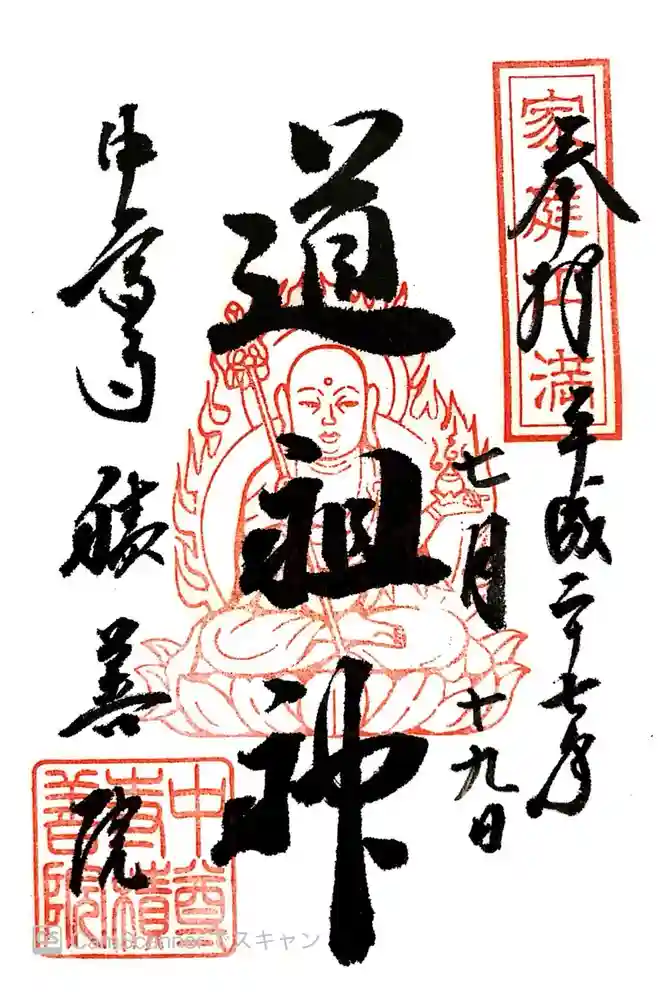 家庭円満
奉拝 平成二十七年
七月十九日
道祖神
中尊寺 積善
院
中尊
寺積
善院
CamScannerでスキャン